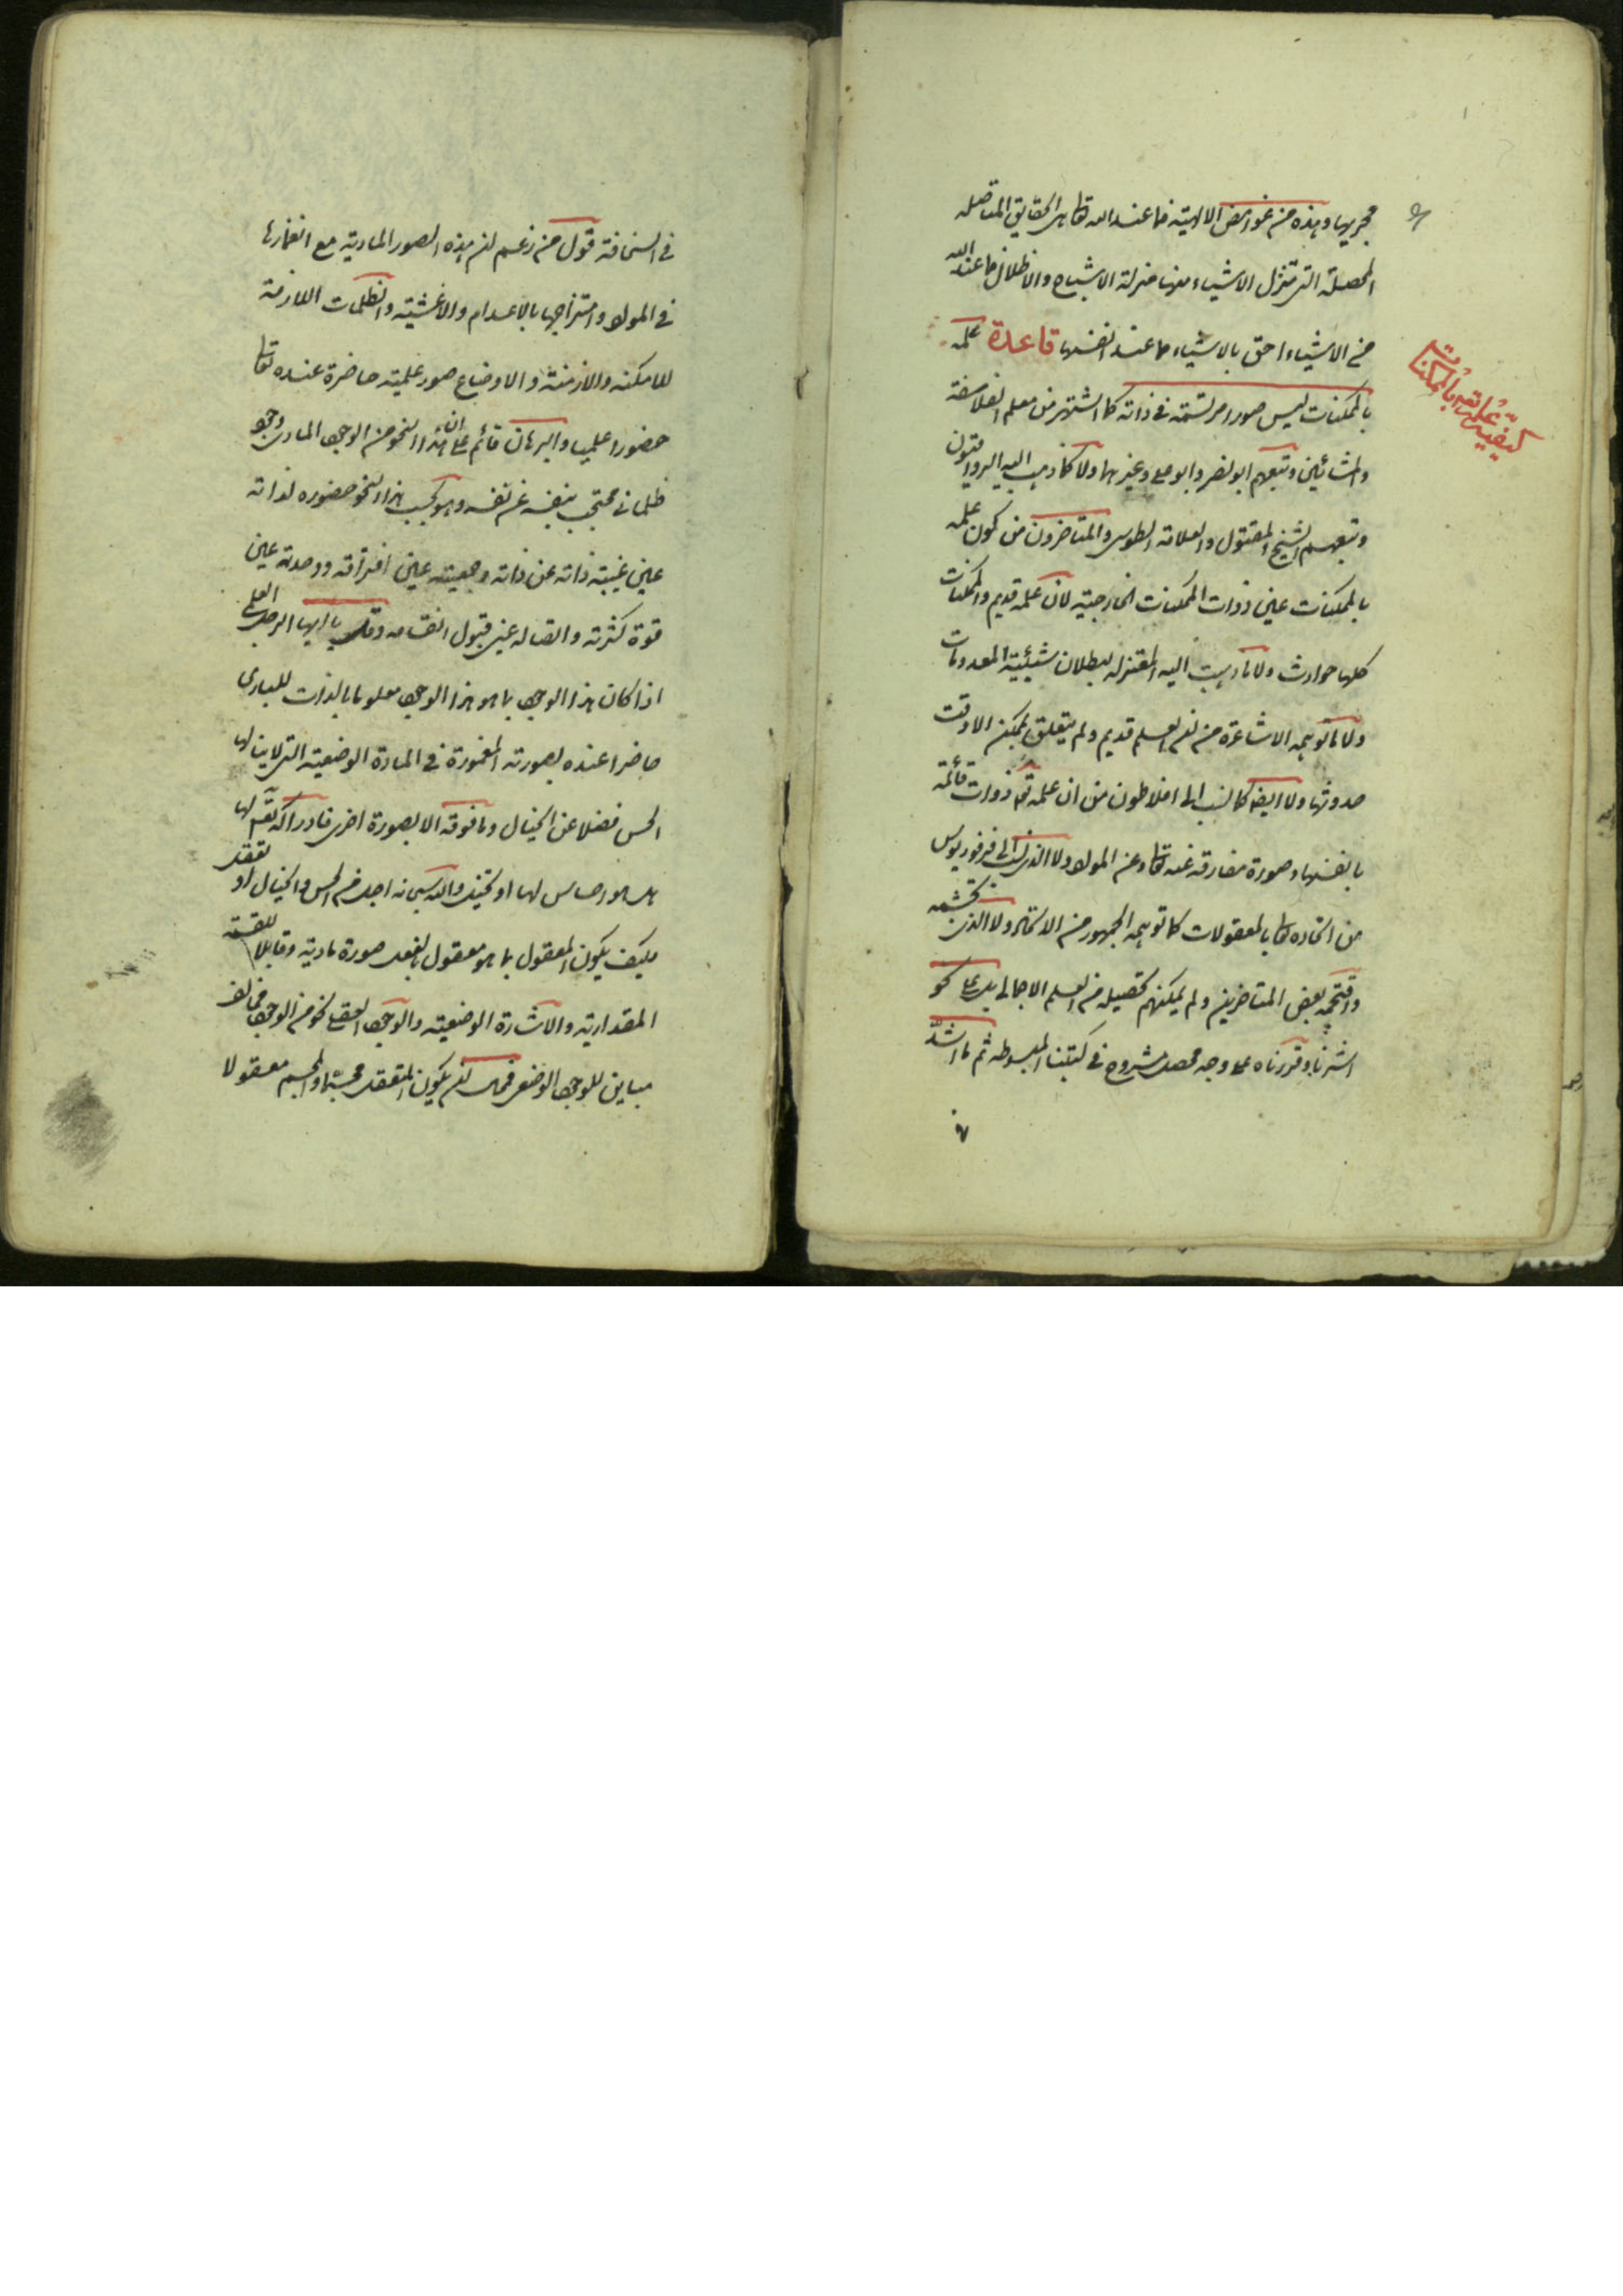 مجريها وهذه من غوامض الالهية فما عند الله تعالى هى الحقايق المتاصله
المحصلة التى تنزل الاشياء منها منزلة الاشباح والاظلال فما عند الله
من الاشياء احق بالاشياء مما عند انفسها قاعدة علمه
كيفيّة علمه تعالى بالممكنات
بالممكنات ليس صورا مرتسمة فى ذاته كما اشتهر من معلم الفلاسفة
والمشائين وتبعهم ابو نصر وابو على وغيرهما ولا كما ذهب اليه الرواقيون
وتبعهم الشيخ المقتول والعلامة الطوسى والمتاخرون من كون علمه
بالممكنات عين ذوات الممكنات الخارجية لان علمه قديم والممكنات
كلها حوادث ولا ما ذهبت اليه المعتزله لبطلان شيئية المعدومات
ولا ما توهمه الاشاعرة من ان العلم قديم ولم يتعلق بممكن الا وقت
حدوثها ولا ايضا كما نسب الى افلاطون من ان علمه تعالى ذوات قائمة
بانفسها وصورة مفارقة عنه تعالى وعن المواد ولا الذى نسب الى فرفوريوس
من اتحاده تعالى بالمعقولات كما توهمه الجمهور من الاتحاد ولا الذى تجشمه
واقتحمه بعض المتاخرين ولم يمكنهم تحصيله من العلم الاجمالى بل على نحو
اشرنا وقررناه على وجه محصل مشروح فى كتبنا المبسوطه ثم ما اشدّ
فى السخافة قول من زعم ان هذه الصور المادية مع انغمارها
فى المواد وامتزاجها بالاعدام والاغشية والظلمات اللازمة
للامكنه والازمنة والاوضاع صور علمية حاضرة عنده تعالى
حضورا علميا والبرهان قائم على ان هذا النحو من الوجود المادى وجود
ظلمانى محتجب بنفسه عن نفسه وهو بحسب هذا النحو حضوره لذاته
عين غيبة ذاته عن ذاته وجمعيته عين افتراقه ووحدته عين
قوة كثرته واتصاله عين قبول انقسامه وقل يا ايها الرجل العلمى
اذا كان هذا الوجود بما هو هذا الوجود معلوما بالذات للبارى
حاضرا عنده بصورته المغمورة فى المادة الوضعية التى لا ينالها
الحس فضلا عن الخيال وما فوقه الا بصورة اخرى فادراكه تعالى لها
هل هو احساس لها او تخيل والله سبحانه اجل من الحس والخيال او تعقل
فكيف يكون المعقول بما هو معقول بالفعل صورة مادية وقابلا للقسمة
المقدارية والاشارة الوضعية والوجود العقلى نحو من الوجود مخالف
مباين للوجود الوضعى فمحال ان يكون المتعقل مجسّما والجسم معقولا